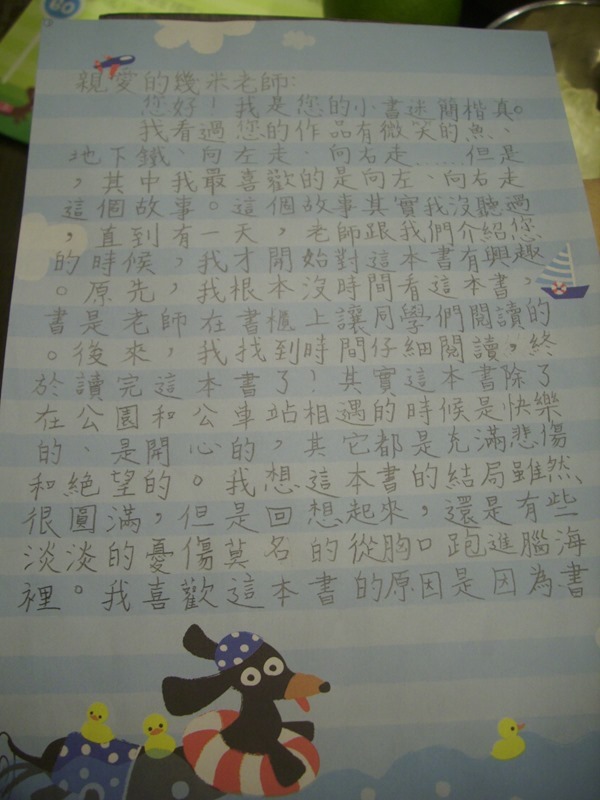 親愛的幾米老師:
您好!我是您的小書迷簡楷真。
我看過您的作品有微笑的魚、
地下鐵、向左走、向右走……但是
,其中我最喜歡的是向左、向右走
這個故事。這個故事其實我沒聽過
,直到有一天,老師跟我們介紹您
的時候,我才開始對這本書有興趣
。原先,我根本沒時間看這本書,
書是老師在書櫃上讓同學們閱讀的
。後來,我找到時間仔細閱讀,終
於讀完這本書了!其實這本書除了
在公園和公車站相遇的時候是快樂
的、是開心的,其它都是充滿悲傷
和絕望的。我想這本書的結局雖然、
很圓滿,但是回想起來,還是有些
淡淡的憂傷莫名的從胸口跑進腦海
裡。我喜歡這本書的原因是因為書